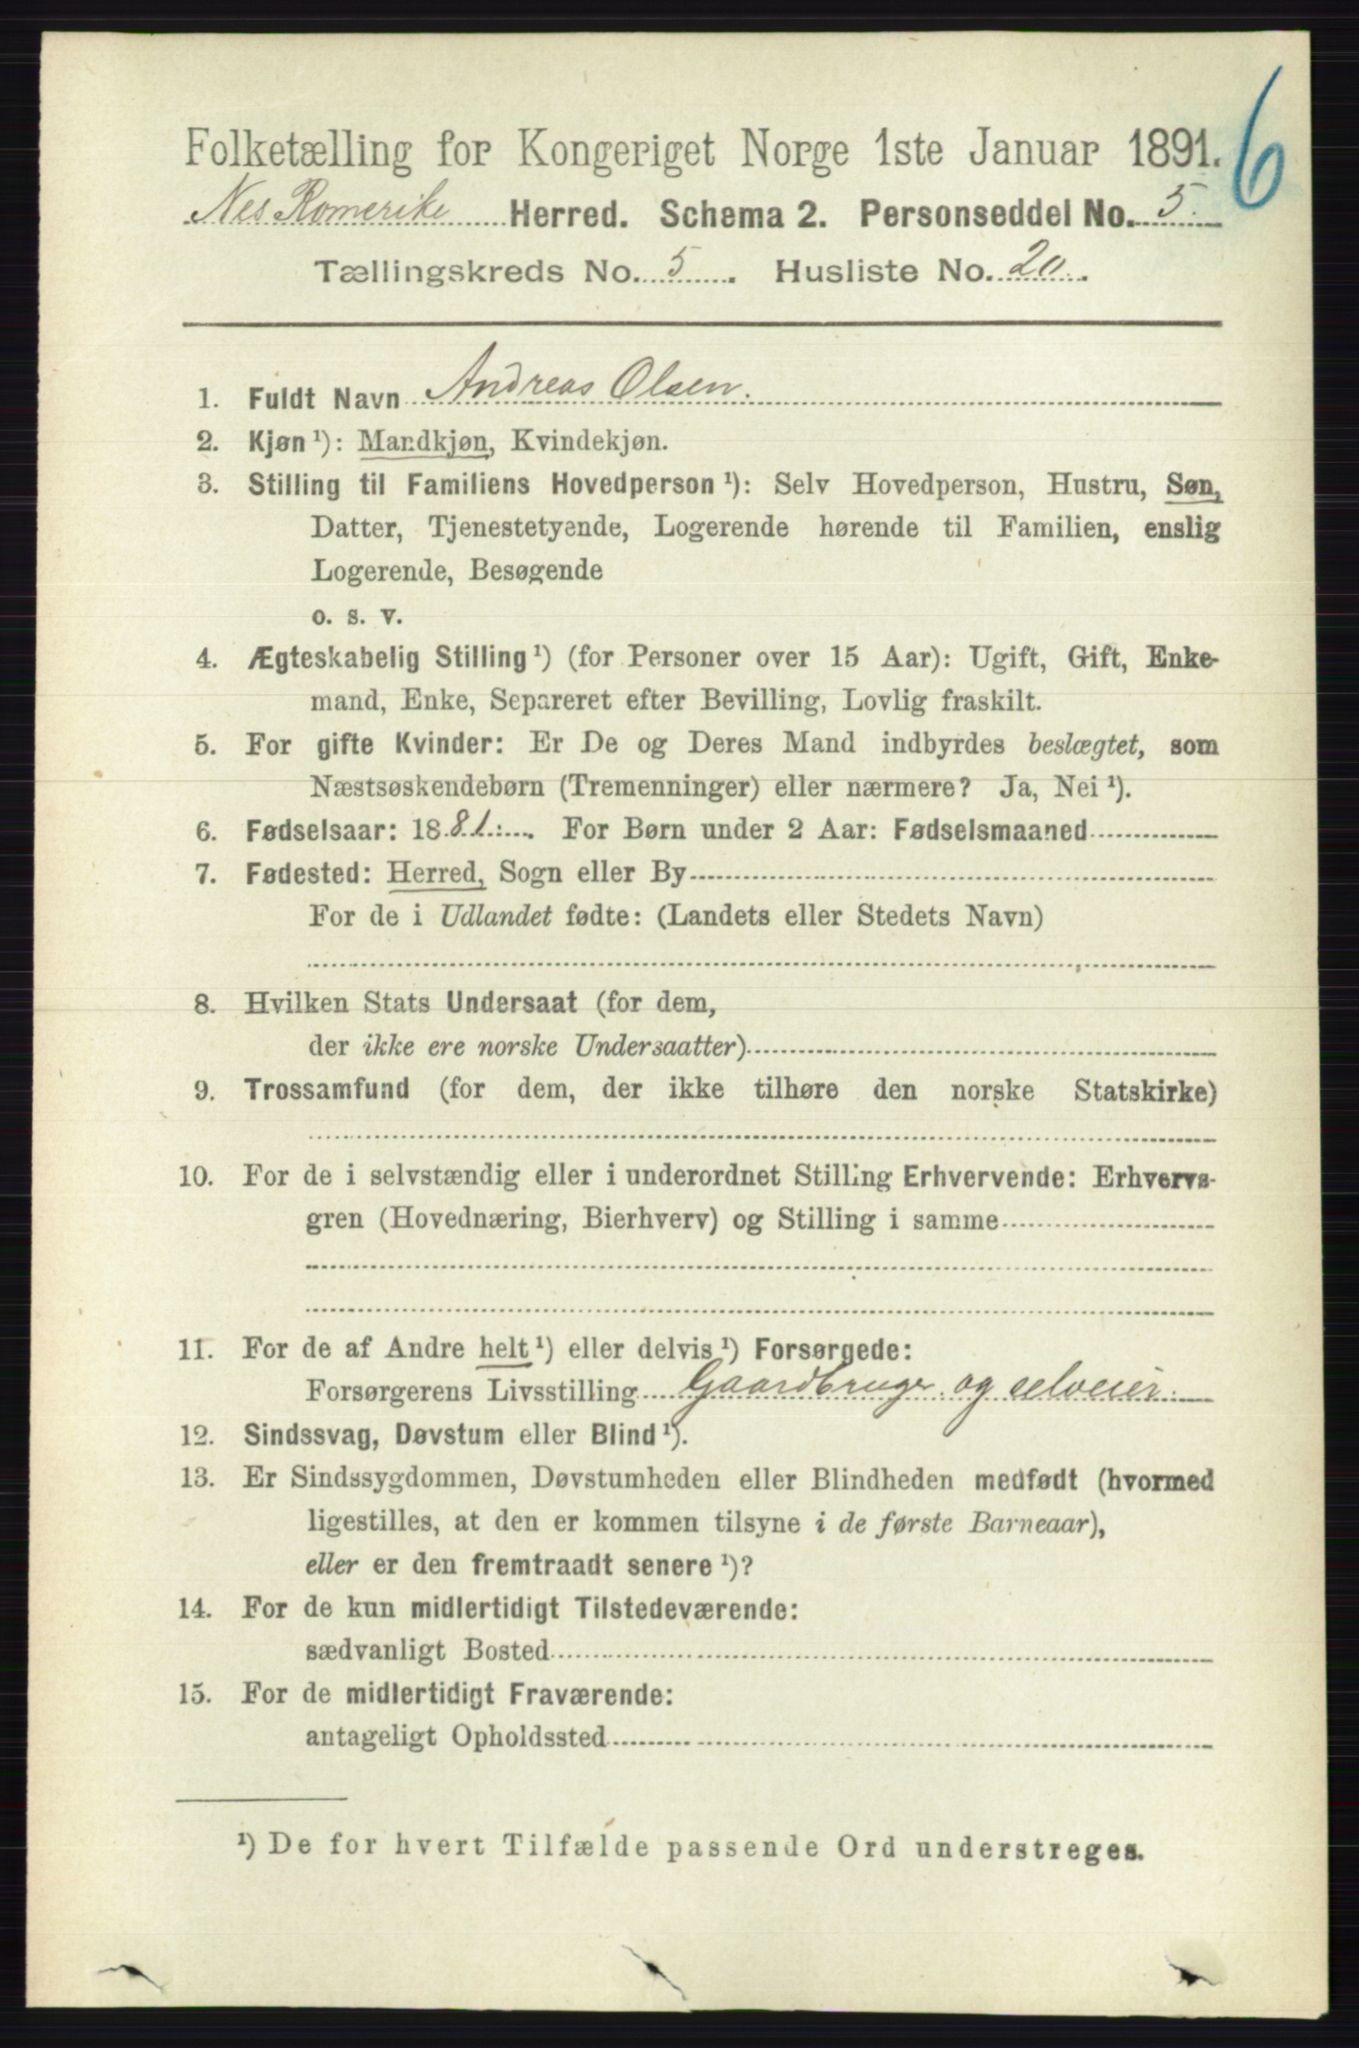 6
Folketælling for Kongeriget Norge 1ste Januar 1891.
Nes Romerike Herred. Schema 2. Personseddel No. 5.
Tællingskreds No. 5. Husliste No. 20.
1. Fuldt Navn Andreas Olsen.
2. Kjøn ¹): Mandkjøn, Kvindekjøn.
3. Stilling til Familiens Hovedperson ¹): Selv Hovedperson, Hustru, Søn,
Datter, Tjenestetyende, Logerende hørende til Familien, enslig
Logerende, Besøgende
o. s. v.
4. Ægteskabelig Stilling ¹) (for Personer over 15 Aar): Ugift, Gift, Enke-
mand, Enke, Separeret efter Bevilling, Lovlig fraskilt.
5. For gifte Kvinder: Er De og Deres Mand indbyrdes beslægtet, som
Næstsøskendebørn (Tremenninger) eller nærmere? Ja, Nei ¹).
6. Fødselsaar: 1881. For Børn under 2 Aar: Fødselsmaaned
7. Fødested: Herred, Sogn eller By
For de i Udlandet fødte: (Landets eller Stedets Navn)
8. Hvilken Stats Undersaat (for dem,
der ikke ere norske Undersaatter)
9. Trossamfund (for dem, der ikke tilhøre den norske Statskirke)
10. For de i selvstændig eller i underordnet Stilling Erhvervende: Erhvervs-
gren (Hovednæring, Bierhverv) og Stilling i samme
11. For de af Andre helt ¹) eller delvis ¹) Forsørgede:
Forsørgerens Livsstilling Gaardbruger og selveier.
12. Sindssvag, Døvstum eller Blind ¹).
13. Er Sindssygdommen, Døvstumheden eller Blindheden medfødt (hvormed
ligestilles, at den er kommen tilsyne i de første Barneaar),
eller er den fremtraadt senere ¹)?
14. For de kun midlertidigt Tilstedeværende:
sædvanligt Bosted
15. For de midlertidigt Fraværende:
antageligt Opholdssted
¹) De for hvert Tilfælde passende Ord understreges.